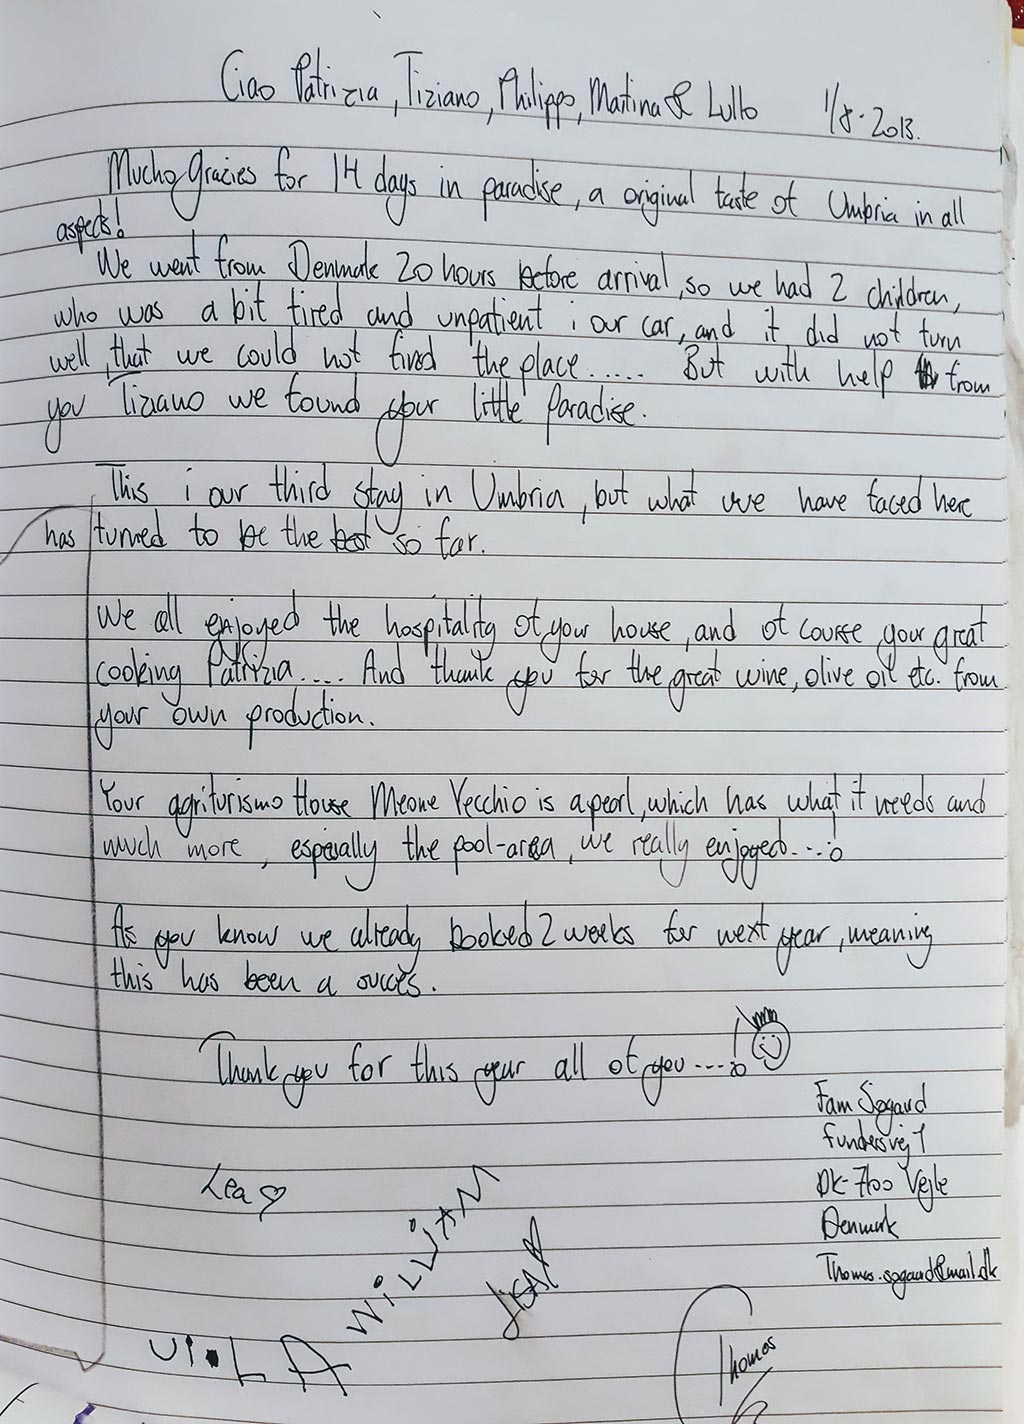 Ciao Patrizia, Tiziano, Philippo, Martina & Lullo 1/8-2013.
Mucho Gracies for 14 days in paradise, a original taste of Umbria in all
aspects!
We went from Denmark 20 hours before arrival, so we had 2 children,
who was a bit tired and unpatient i our car, and it did not turn
well, that we could not find the place...... But with help from
you Tiziano we found your little Paradise.
This i our third stay in Umbria, but what we have faced here
has turned to be the best so far.
We all enjoyed the hospitality of your house, and of course your great
cooking Patrizia.... And thank you for the great wine, olive oil etc. from
your own production.
Your agriturismo House Meone Vecchio is a pearl, which has what it needs and
much more, especially the pool-area, we really enjoyed...!
As you know we already booked 2 weeks for next year, meaning
this has been a succes.
Thank you for this year all of you....!
Fam Søgaard
DK-7100 Vejle
Denmark
Thomas.sogaard@mail.dk
Lea
WiLLiAM
LiSA
ViOLA
Thomas